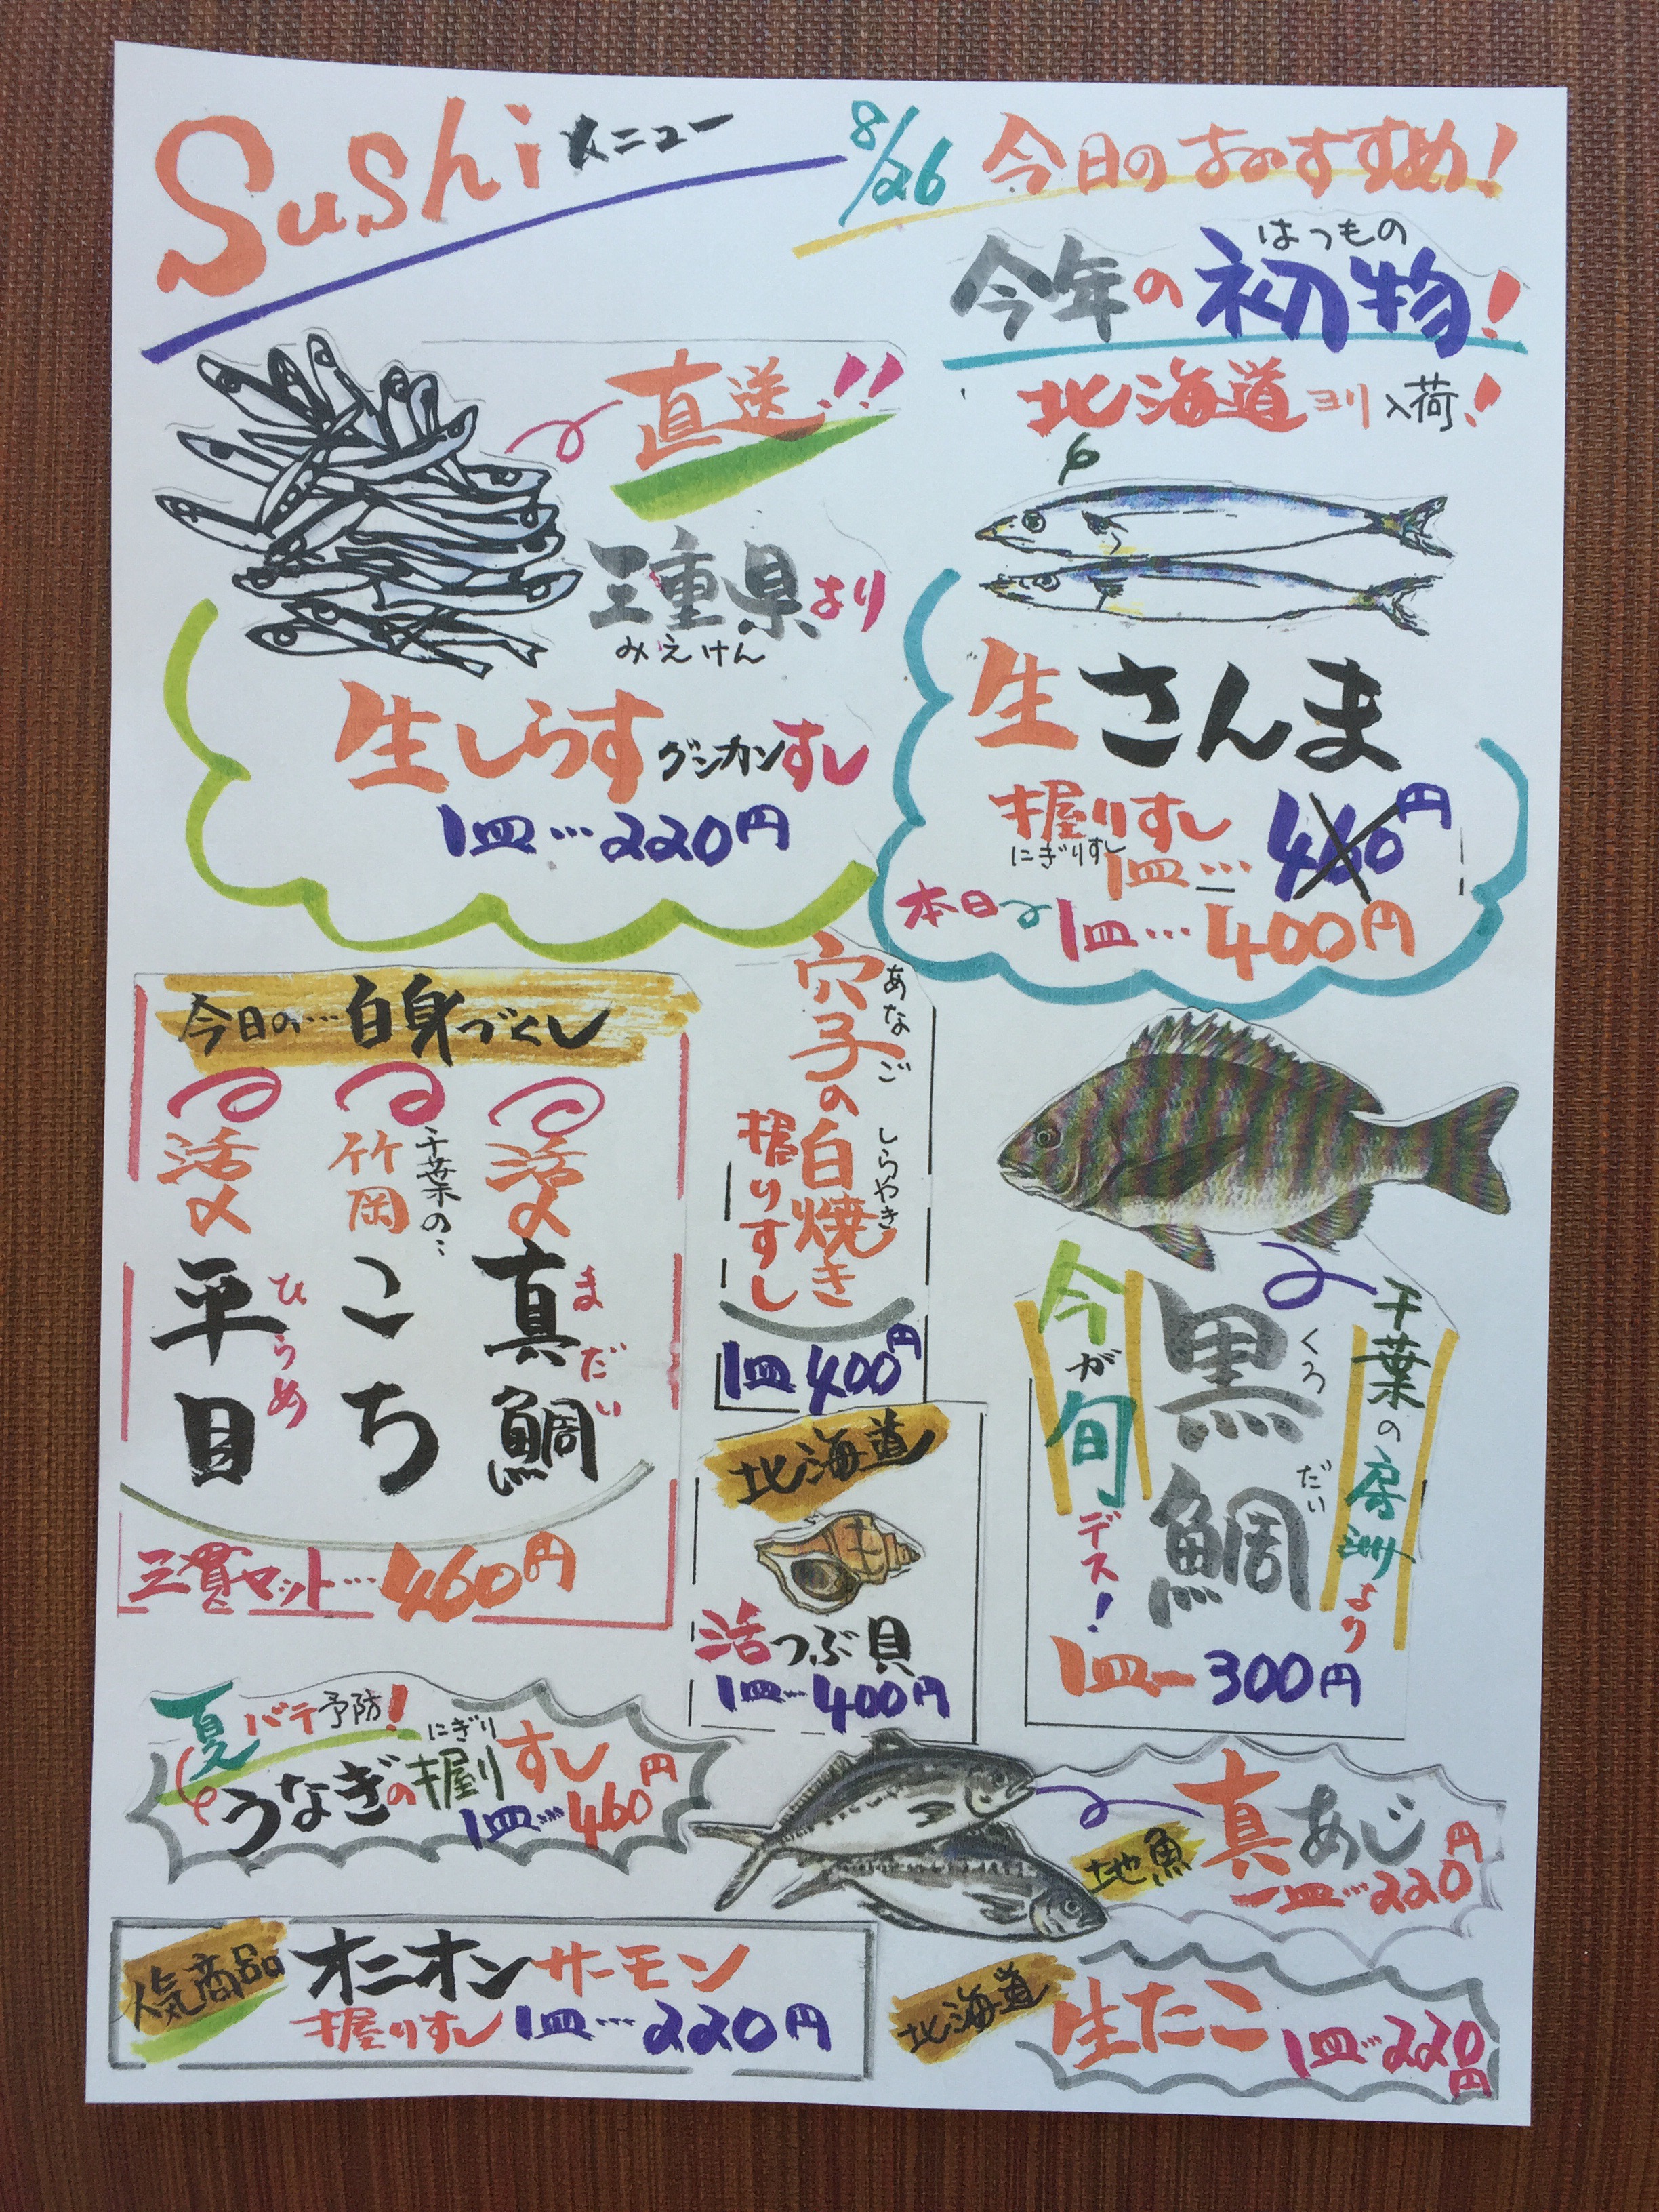 Sushi メニュー
8/26 今日のおすすめ!
はつもの
今年の初物!
北海道ヨリ入荷!
生さんま
握りすし
にぎりすし
1皿… 460円
本日 1皿… 400円
直送!!
三重県より
みえけん
生しらすグンカンすし
1皿…220円
今日の…白身づくし
活〆
真鯛
まだい
千葉の…
竹岡
こち
活〆
平目
ひらめ
三貫セット…460円
穴子の白焼き
あなご しらやき
握りすし
1皿400円
北海道
活つぶ貝
1皿…400円
千葉の房洲より
黒鯛
くろ だい
今が旬デス!
1皿ー300円
夏バテ予防!
にぎり
うなぎの握りすし
1皿…460円
地魚
真あじ
一皿…220円
人気商品
オニオンサーモン
握りすし 1皿…220円
北海道
生たこ
1皿…220円